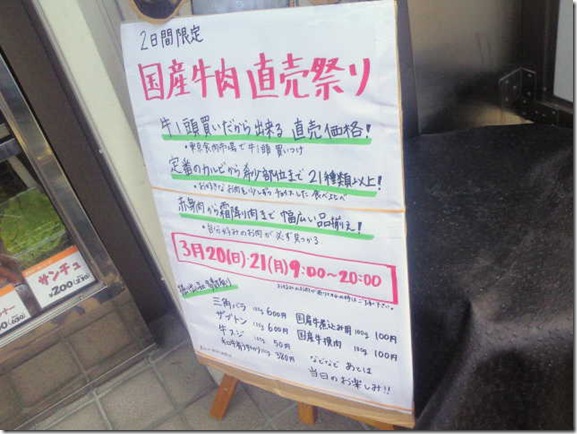 2日間限定
国産牛肉 直売祭り
牛1頭買いだから出来る 直売価格!
・東京食肉市場で牛1頭 買いつけ
定番のカルビから希少部位まで 21種類以上!
・お好きな お肉を少しずつ チョイスした 食べよべ
赤身肉から霜降り肉まで 幅広い品揃え!
・自分好みのお肉が必ず見つかる
3月20(日)・21(月) 9:00〜20:00
三角バラ 100g 600円
ザブトン 100g 600円
牛スジ 100g 50円
380円
国産牛煮込み用 100g 100円
国産牛挽肉 100g 100円
などなど あとは
当日のお楽しみ!!
サンチュ
¥200